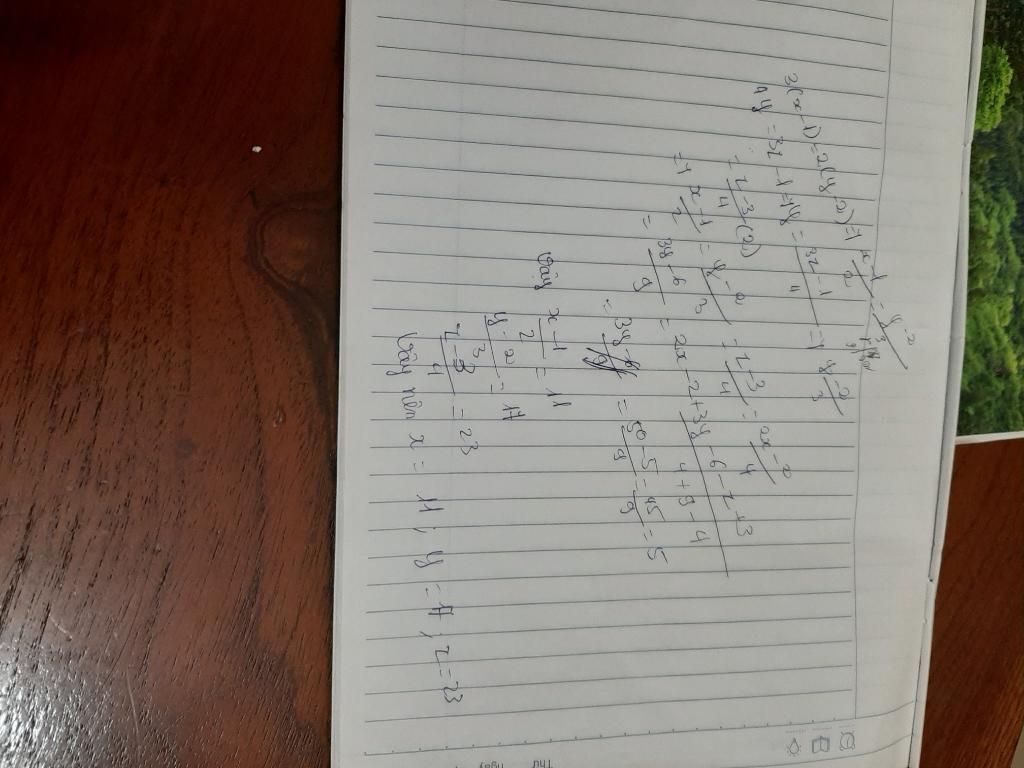 3(x-1)=2(y-2)=1 x-1/2 = y-2/3
4y = 3z-1+1y = 3z-1/4 =1 y-2/3
= z-3/4 (2)
=1 x-1/2 = y-2/3 = z-3/4 = 2x-2/4
= 3y-6/9 = 2x-2+3y-6-z+3/4+9-4
= 50-5/9 = 45/9 = 5
Vậy x-1/2 = 11
y-2/3 = 17
z-3/4 = 23
Vậy nên x = 11; y = 17; z = 23
Thứ
Ngày